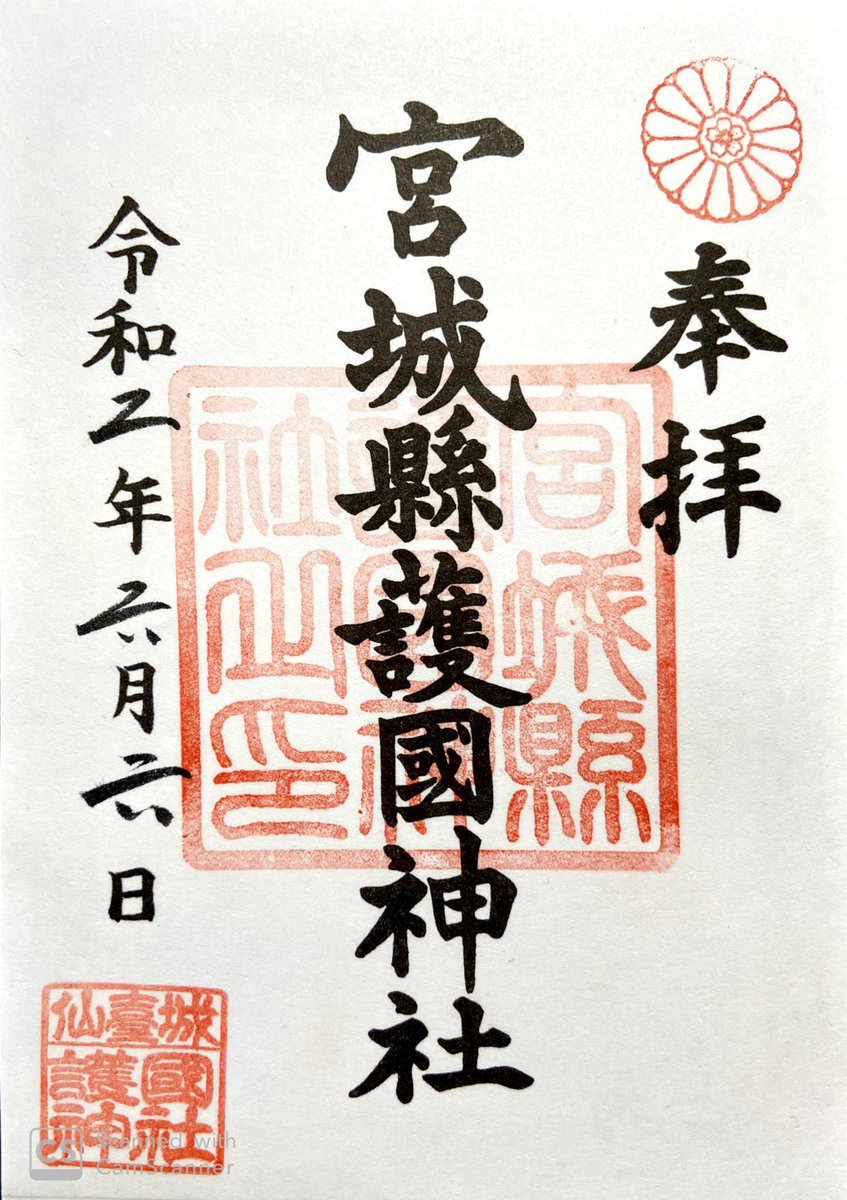 奉拝
宮城縣護國神社
令和二年六月六日
宮城縣
護國神
社之印
仙臺城
護國
神社
CS Scanned with
CamScanner